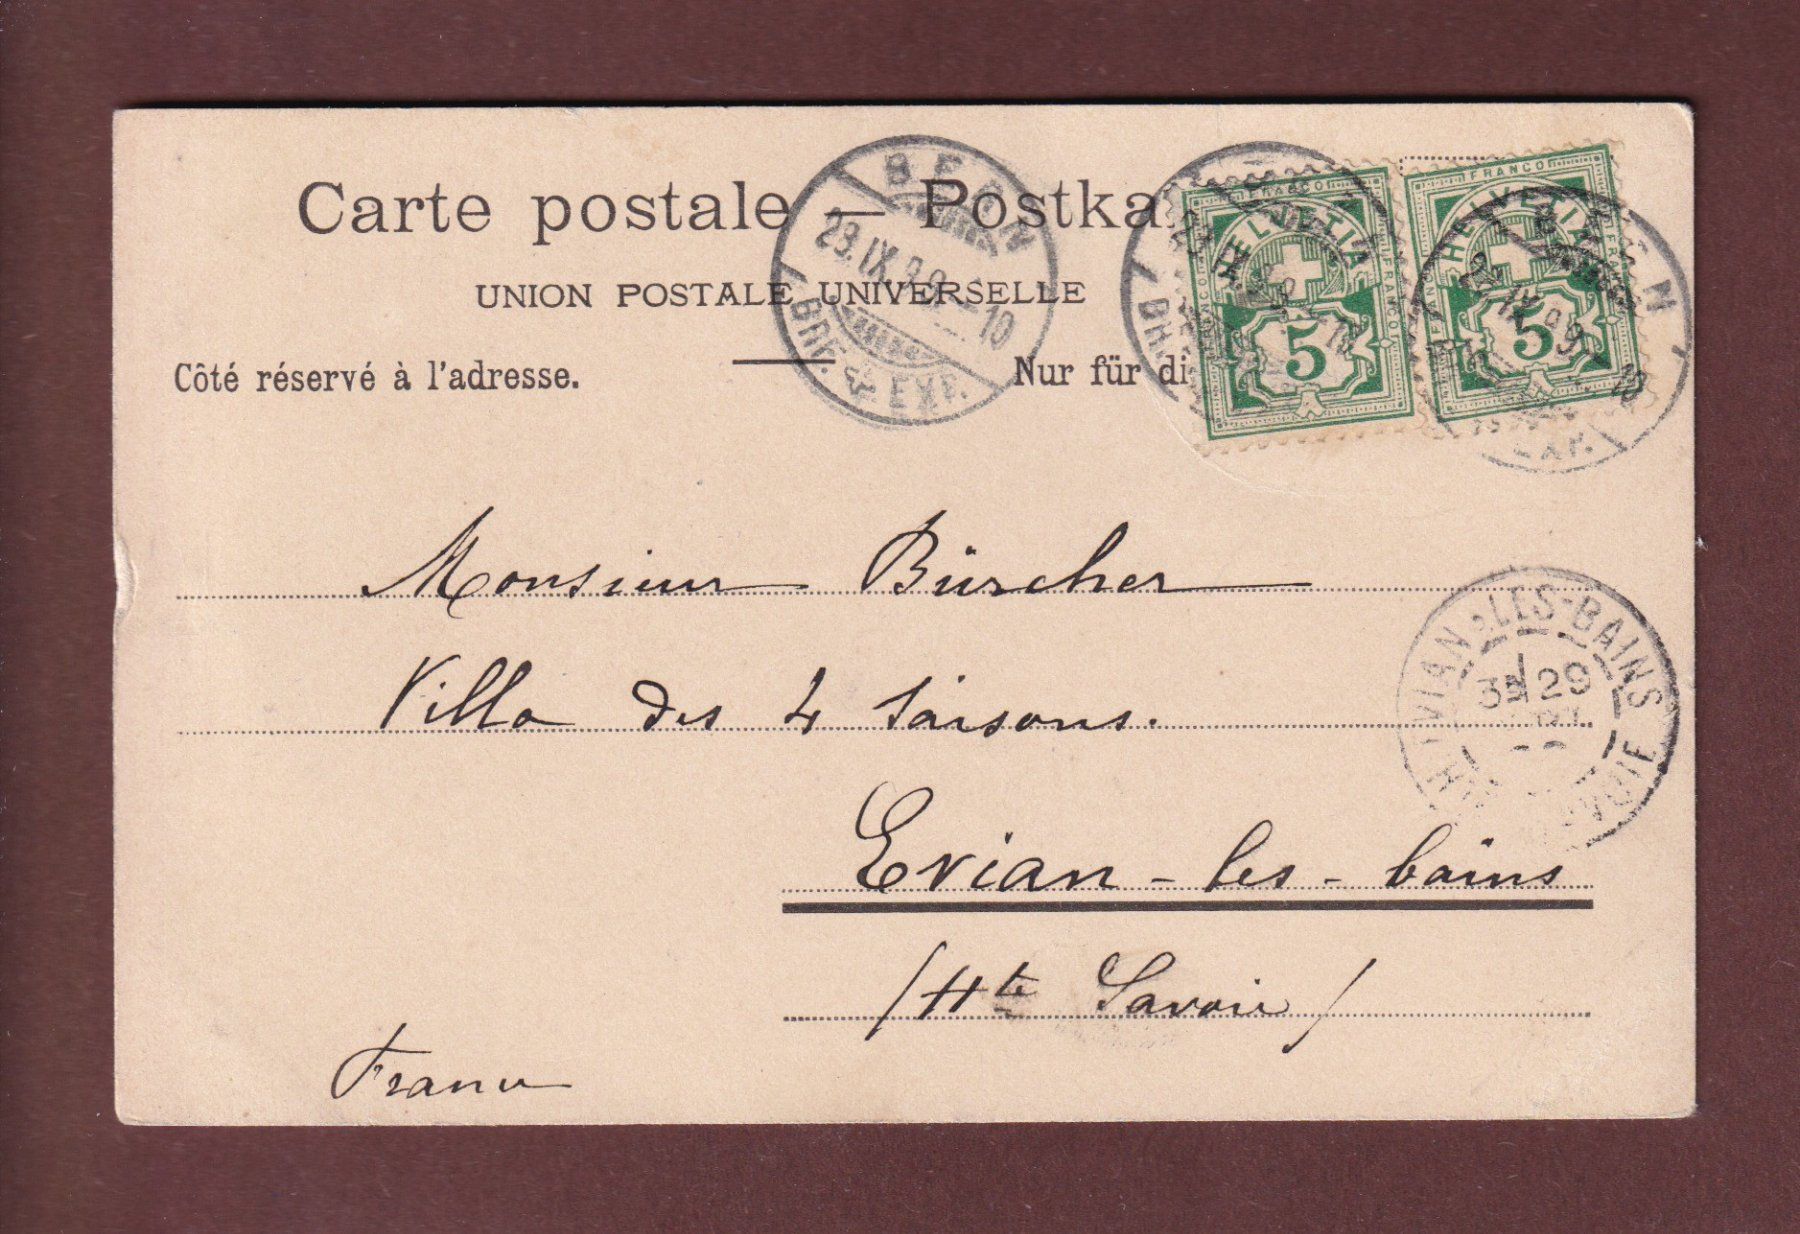 Carte postale — Postka
UNION POSTALE UNIVERSELLE
Côté réservé à l'adresse.
Nur für di
BERN
28.IX.99.–10
BRF. EXP.
FRANCO
HELVETIA
5
FRANCO
HELVETIA
5
IX.99.–10
EXP.
Monsieur Bürcher
Villa des 4 Saisons.
EVIAN-LES-BAINS
3E 29
Evian-les-bains
/Hte Savoie/
France